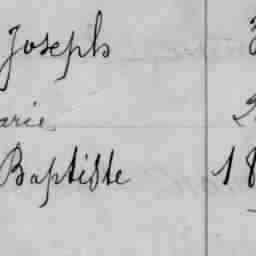 Joseph 3
arie 2
Baptiste 18